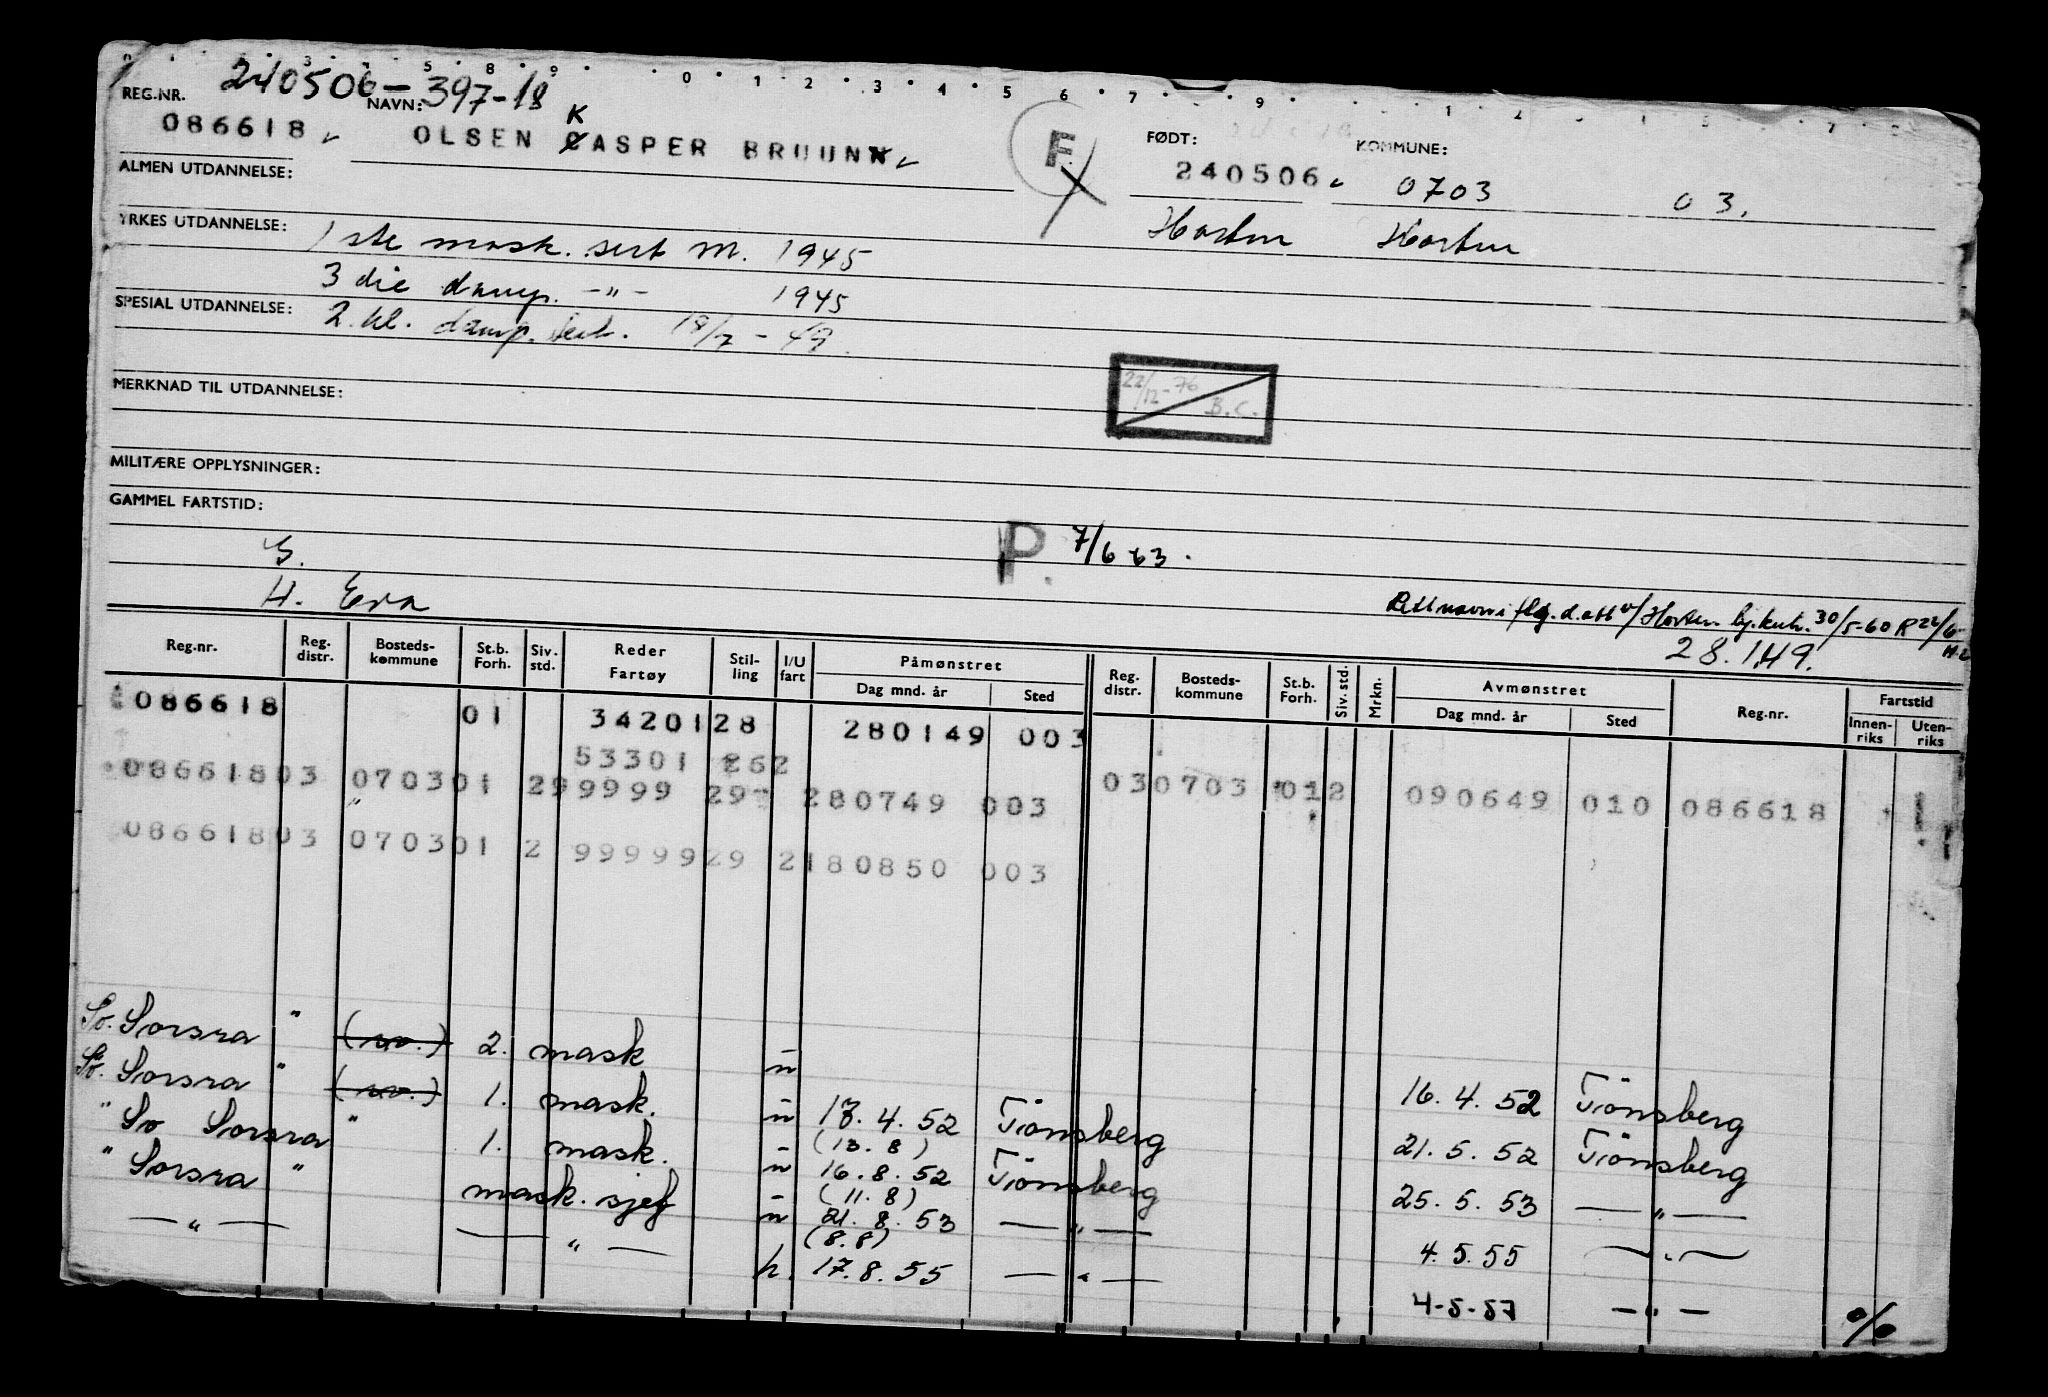 240506-397-18
REG.NR. NAVN: FØDT: KOMMUNE:
K
086618 OLSEN CASPER BRUUN F 240506 0703 03.
ALMEN UTDANNELSE:
Horten Horten
YRKES UTDANNELSE: 1ste mask. sert M. 1945
3die damp. -"- 1945
SPESIAL UTDANNELSE: 2. kl. damp. sert. 18/7-49.
22/12-76 B.C.
MERKNAD TIL UTDANNELSE:
MILITÆRE OPPLYSNINGER:
GAMMEL FARTSTID:
P. 7/6 63.
G.
H. Eva
Rett navn i flg. d.att v/Horten 30/5-60
28.1.49.
Reg.nr. Reg. distr. Bosteds- kommune St.b. Forh. Siv. std. Reder Fartøy Stil- ling I/U fart Påmønstret Dag mnd. år Sted Reg. distr. Bosteds- kommune St.b. Forh. Siv. std. Mrkn. Avmønstret Dag mnd. år Sted Reg.nr. Fartstid Innen- riks Uten- riks
086618 01 3420128 280149 003
53301 262
08661803 070301 299999 29 280749 003 030703 012 090649 010 086618
"
08661803 070301 2 9999929 2180850 003
So. Sorsra " (so.) 2. mask u 16.4.52 Tönsberg
So. Sorsra " (so.) 1. mask. u 18.4.52 Tönsberg 21.5.52 Tönsberg
(13.8)
" So Sorsra " 1. mask. u 16.8.52 Tönsberg 25.5.53 — " —
(11.8)
" Sorsra " mask. sjef u 21.8.53 — " — 4.5.55 — " —
(8.8)
— " — — " — h. 17.8.55 — " — 4-5-57 — " — %